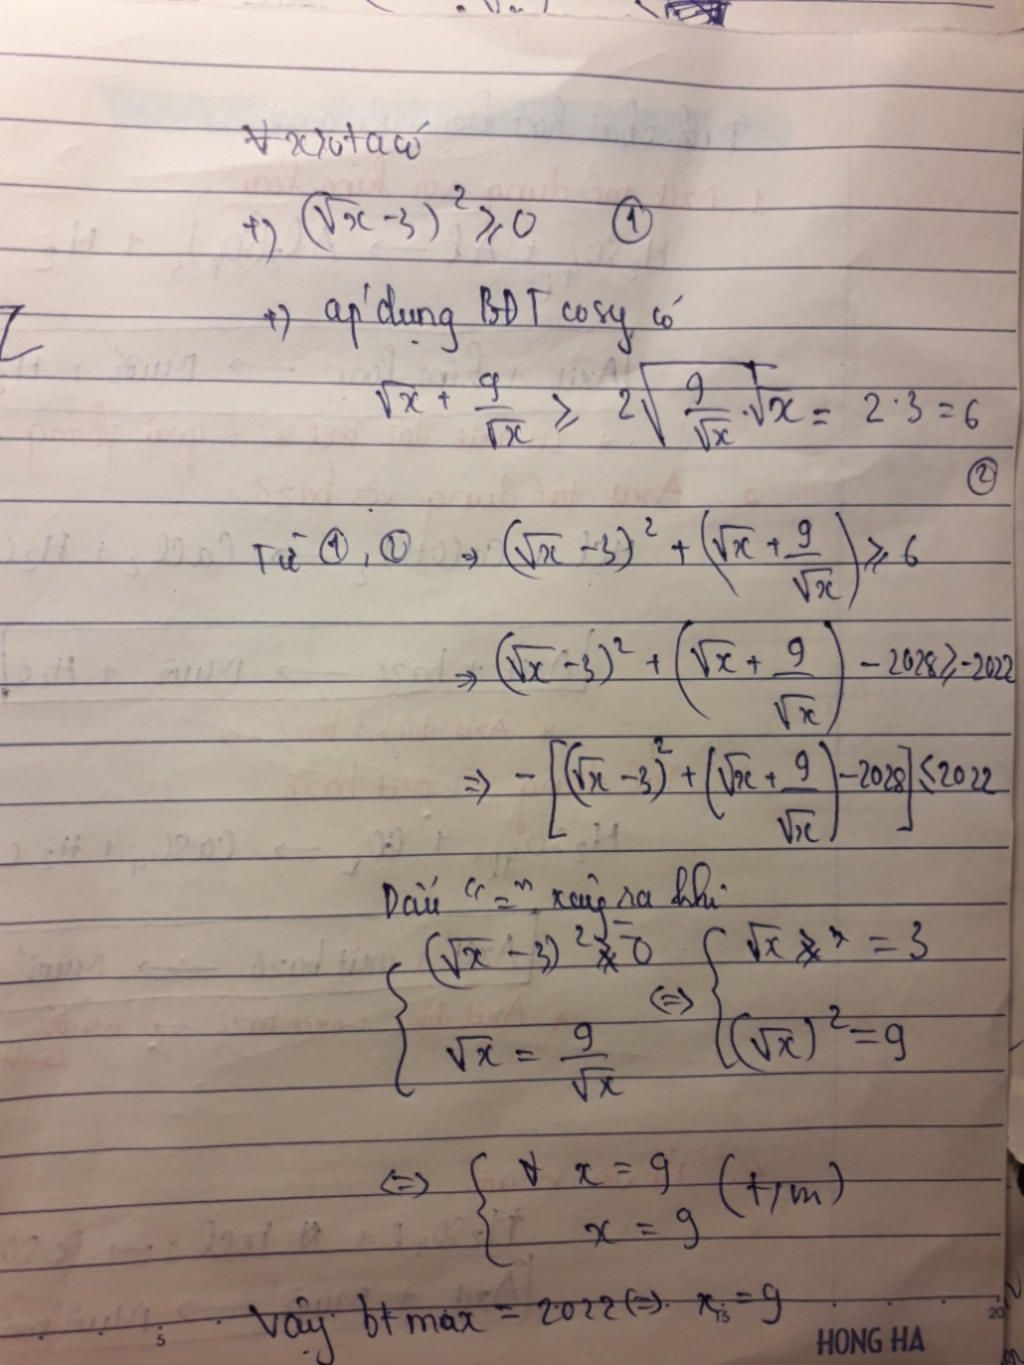 ∀ x>0 ta có
+) (√x - 3)² ≥ 0 ①
+) áp dụng BĐT cosy có
√x + 9/√x ≥ 2√(9/√x · √x) = 2·3 = 6
②
Từ ①, ② ⇒ (√x - 3)² + (√x + 9/√x) ≥ 6
⇒ (√x - 3)² + (√x + 9/√x) - 2028 ≥ -2022
⇒ - [(√x - 3)² + (√x + 9/√x) - 2028] ≤ 2022
Dấu "=" xảy ra khi
{ (√x - 3)² = 0 ⇔ { √x = 3
√x = 9/√x (√x)² = 9
⇔ { x = 9 (t/m)
x = 9
Vậy bt max = 2022 ⇔ x = 9
5 15 20
HONG HA